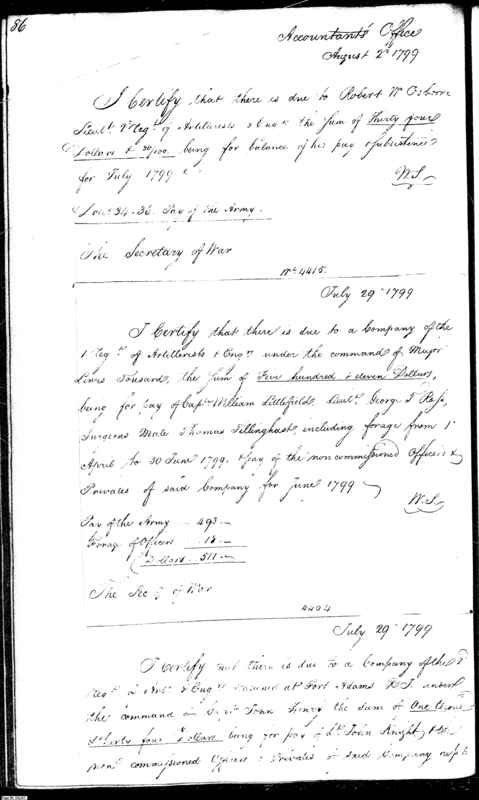 86
Accountants Office
August 2d 1799
I Certify that there is due to Robert W Osborn
Lieut. 1 Regt of Artillerists & Engrs the Sum of Thirty four
Dollars & 36/100 being for balance of his pay & subsistence
for July 1799
W.S.
Dolls 34.36. Pay of the Army.
The Secretary of War
No 4415.
July 29th 1799
I Certify that there is due to a Company of the
1 Regt of Artillerists & Engrs under the command of Major
Lewis Tousard, the Sum of Five hundred & eleven Dollars,
being for pay of Capt. William Littlefield, Lieut. George T Ross,
Surgeons Mate Thomas Tillinghast including forage from 1
April to 30 June 1799, & pay of the noncommissioned Officers &
Privates of said Company for June 1799
W.S.
Pay of the Army 493
Forage of Officers 18
Dollars 511
The Secy of War
4404
July 29th 1799
I Certify that there is due to a Company of the
Regt of Arts & Engrs stationed at Fort Adams R.I. under
the command of Capn John Henry the sum of One thous
& thirty four Dollars being for pay of Lt John Knight,
non commissioned Officers & Privates of said Company